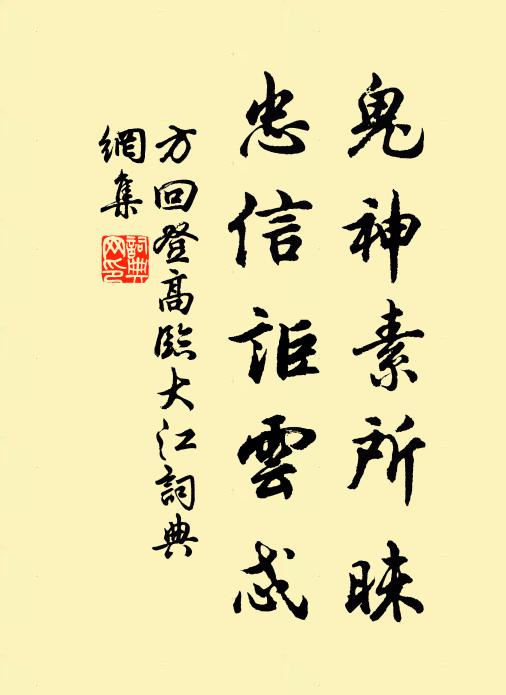 鬼神素所昧
忠信詎雲忒
方回登高臨大江詞典
網集
詞典網印